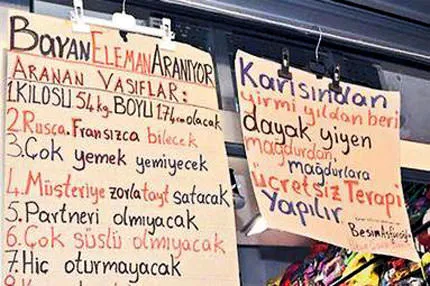 BayanElemanAranıyor
ARANAN VASIFLAR:
1.KİLOSU 54kg. BOYU 1.74cm olacak
2.Rusça.Fransızca bilecek
3.Çok yemek yemiyecek
4.Müşteriye zorla tayt satacak
5.Partneri olmıyacak
6.Çok süslü olmıyacak
7.Hiç oturmayacak
8.
Karısından
yirmi yıldan beri
dayak yiyen
mağdurdan,
mağdurlara
ücretsiz Terapi
YAPILIR.